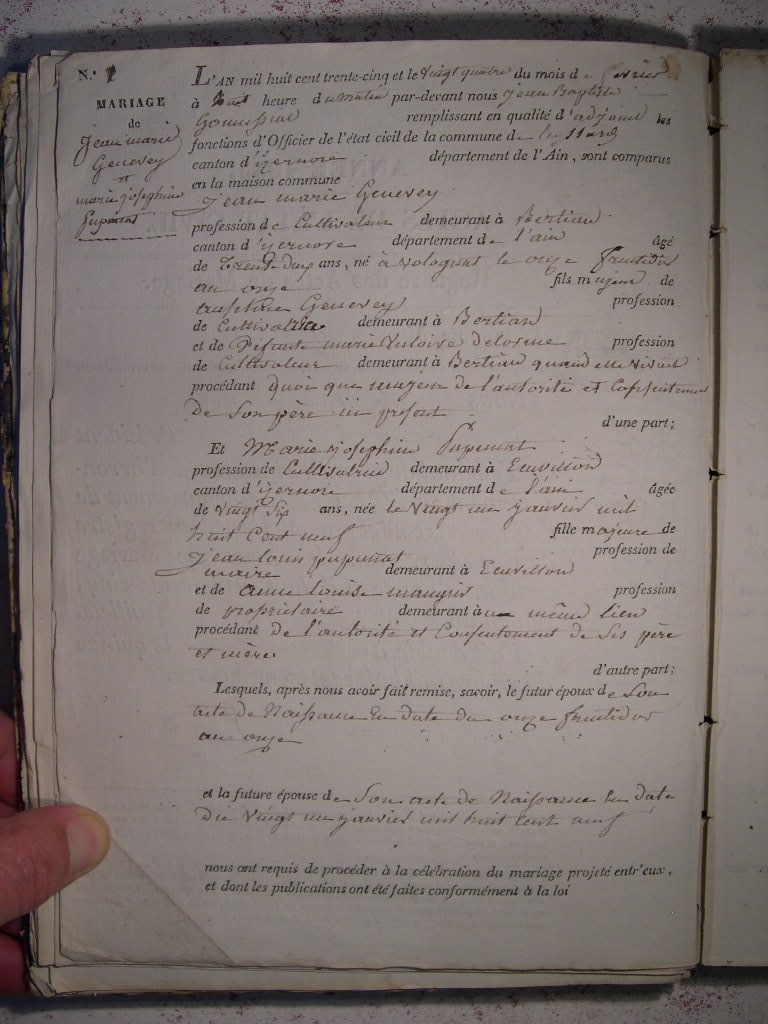 N.º 1
MARIAGE
de
jean marie
Genevey
et
marie josephine
pupunat
L'AN mil huit cent trente-cinq et le vingt quatre du mois de fevrier
à huit heure du matin par-devant nous jean Baptiste
remplissant en qualité d'adjoint les
fonctions d'Officier de l'état civil de la commune de leyssard
canton d'izernore département de l'Ain, sont comparus
en la maison commune
jean marie Genevey
profession de Cultivateur demeurant à Bertian
canton d'izernore département de l'ain âgé
de trente deux ans, né à volognat le onze fructidor
an onze fils majeur de
Genevey profession
de Cultivatrice demeurant à Bertian
et de Défunte marie delosme profession
de Cultivateur demeurant à Bertian quand elle vivait
procédant quoi que majeur de l'autorité et Consentement
de Son père ici présent
d'une part;
Et Marie josephine pupunat
profession de Cultivatrice demeurant à Escuvillon
canton d'izernore département de l'ain âgée
de vingt Six ans, née le vingt un janvier mil
huit Cent neuf fille majeure de
jean louis pupunat profession de
maire demeurant à Escuvillon
et de anne louise profession
de propriétaire demeurant à même lieu
procédant de l'autorité et Consentement de Ses père
et mère
d'autre part;
Lesquels, après nous avoir fait remise, savoir, le futur époux de Son
acte de Naissance En date du onze fructidor
an onze
et la future épouse de Son acte de Naissance En date
Du vingt un janvier mil huit Cent neuf
nous ont requis de procéder à la célébration du mariage projeté entr'eux,
et dont les publications ont été faites conformément à la loi